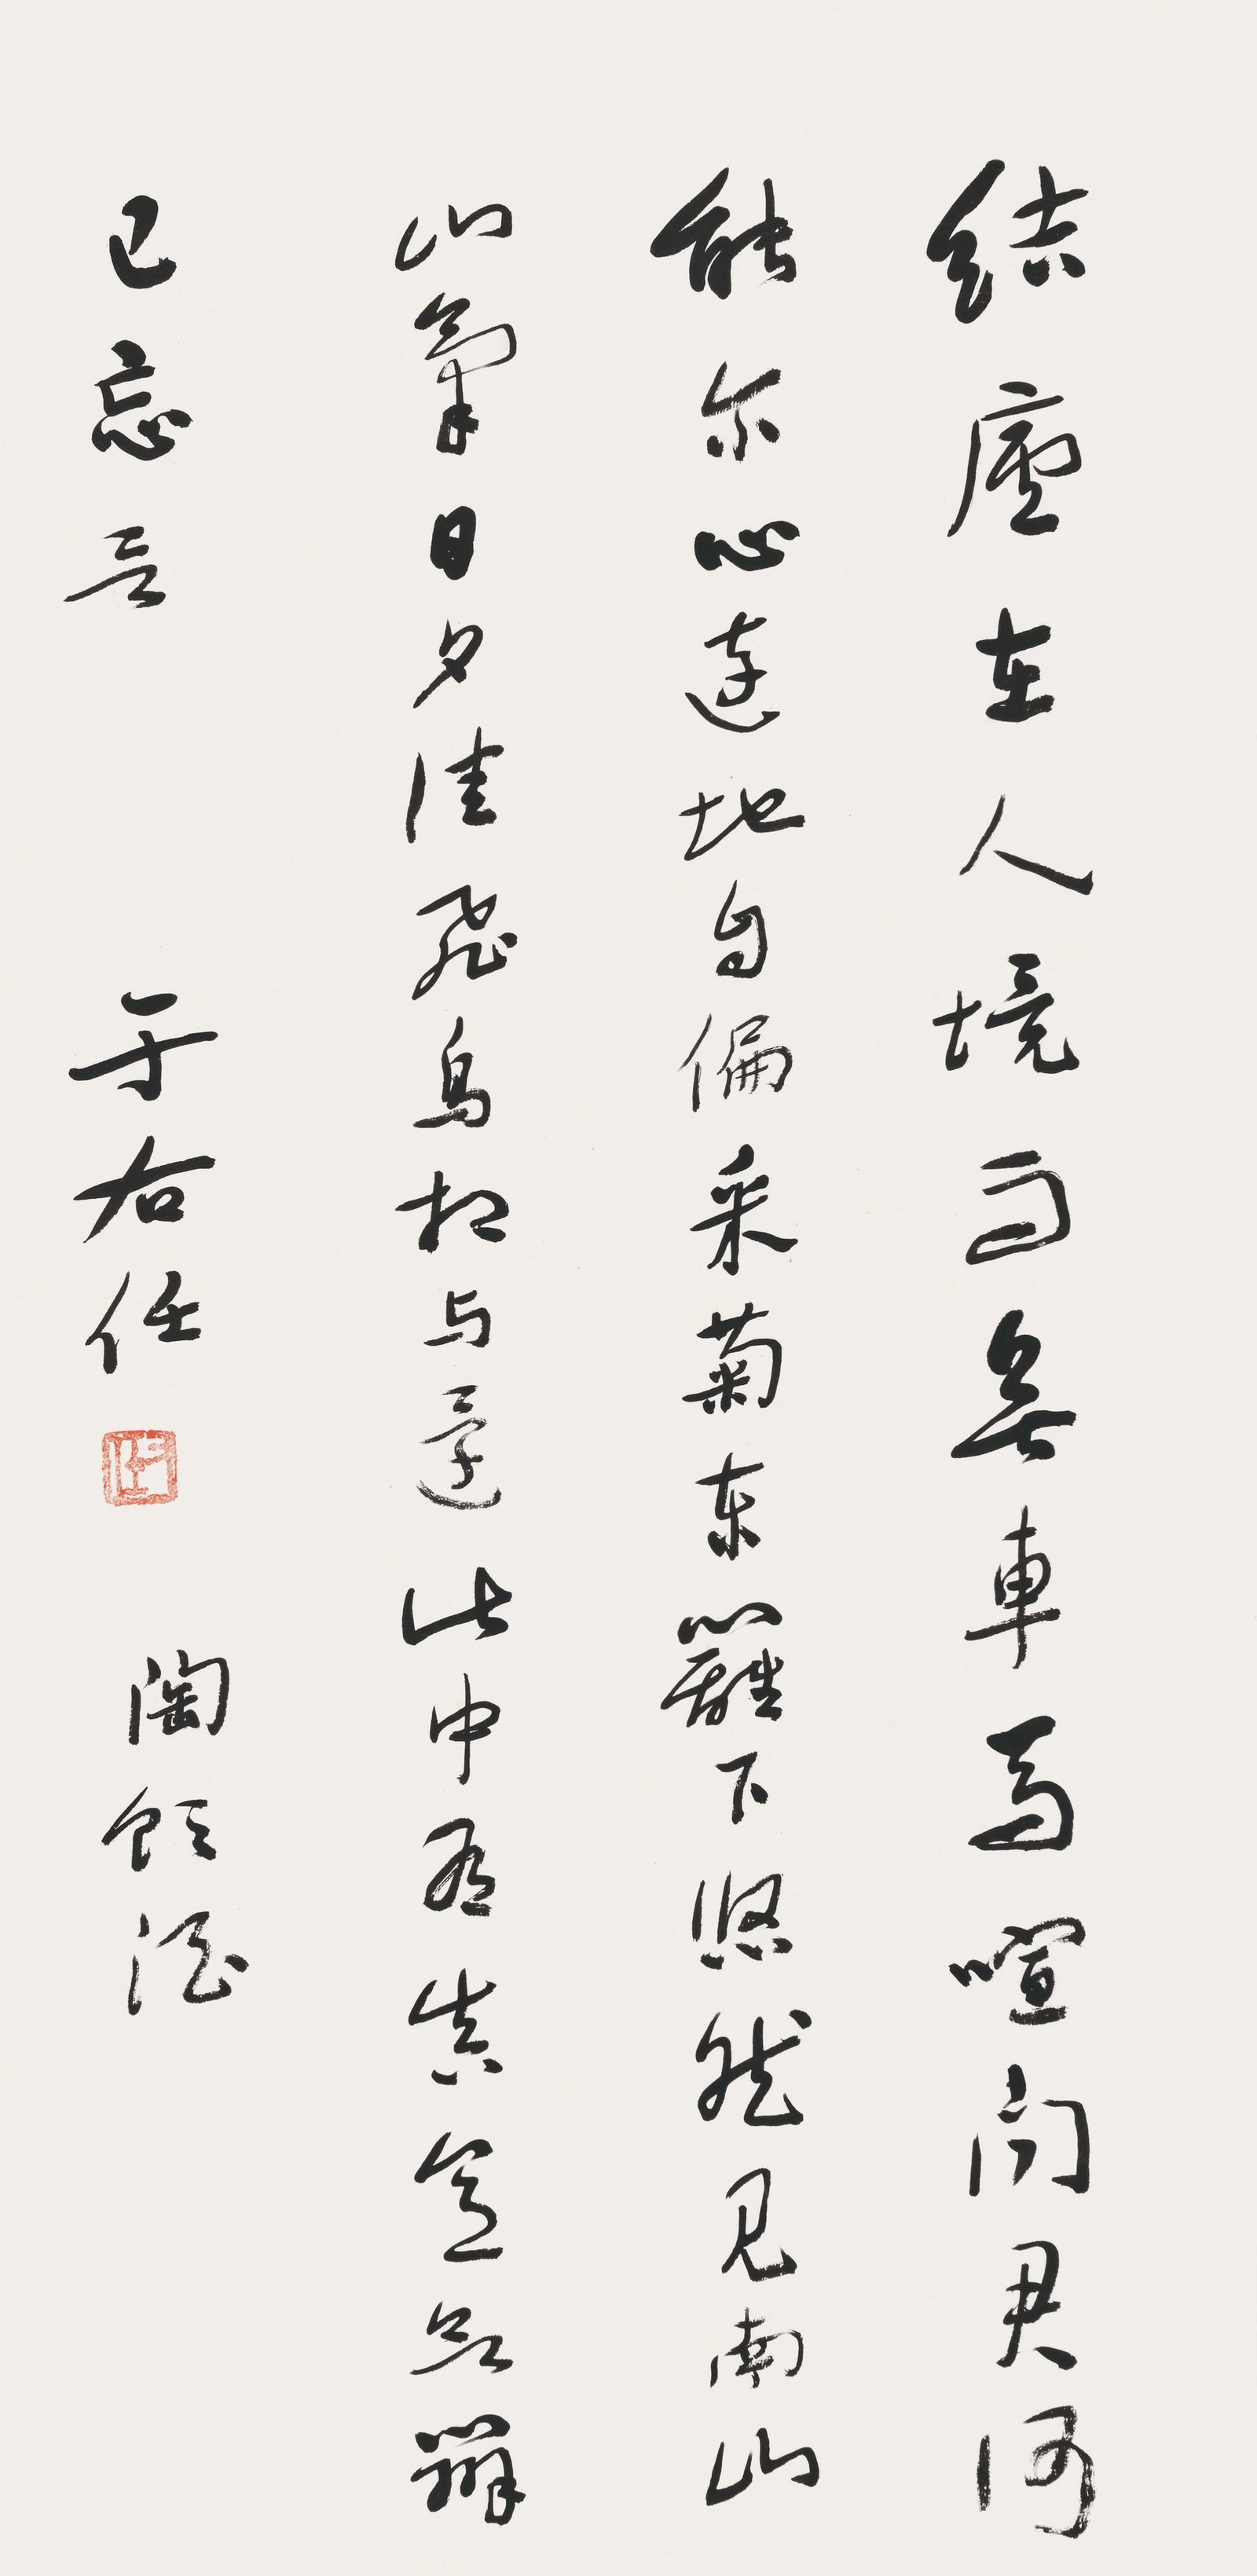 結廬在人境而無車馬喧問君何
能尔心遠地自偏采菊東籬下悠然見南山
山氣日夕佳飛鳥相与還此中有真意欲辯
已忘言
于右任
陶飲酒